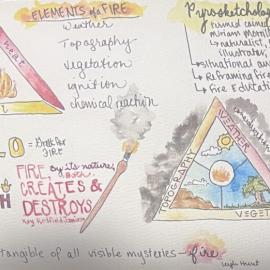 ELEMENTS of FIRE
Weather
Topography
vegetation
ignition
chemical reaction
Pyrosketcholog
turned coined
miriam morrill
naturalist,
illustrator,
situational awa
Reframing fire
Fire Educatio
heat
FIRE by its nature, both
CREATES &
DESTROYS
WEATHER
TOPOGRAPHY
VEGET
tangible of all visible mysteries - fire
Leigh Hunt